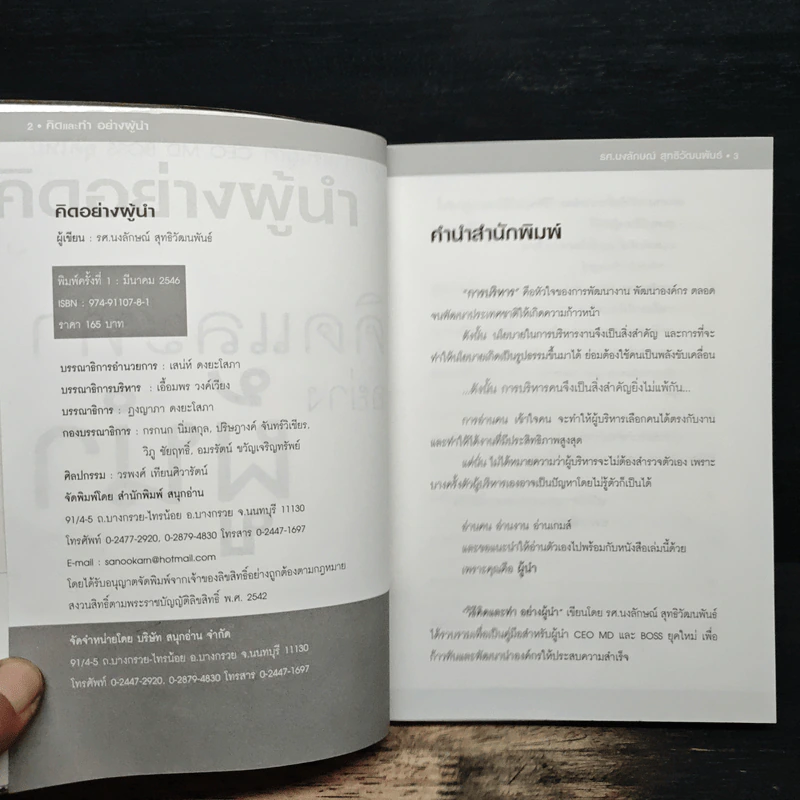 2 • คิดและทำ อย่างผู้นำ
คิดอย่างผู้นำ
ผู้เขียน : รศ.นงลักษณ์ สุทธิวัฒนพันธ์
พิมพ์ครั้งที่ 1 : มีนาคม 2546
ISBN : 974-91107-8-1
ราคา 165 บาท
บรรณาธิการอำนวยการ : เสน่ห์ ดงยะโสภา
บรรณาธิการบริหาร : เอื้อมพร วงค์เวียง
บรรณาธิการ : ภูงญาภา ดงยะโสภา
กองบรรณาธิการ : กรกนก นิ่มสกุล, ปริษฎางค์ จันทร์วิเชียร,
วิภู ชัยฤทธิ์, อมรรัตน์ ขวัญเจริญทรัพย์
ศิลปกรรม : วรพงศ์ เทียนศิวารัตน์
จัดพิมพ์โดย สำนักพิมพ์ สนุกอ่าน
91/4-5 ถ.บางกรวย-ไทรน้อย อ.บางกรวย จ.นนทบุรี 11130
โทรศัพท์ 0-2477-2920, 0-2879-4830 โทรสาร 0-2447-1697
E-mail : sanookarn@hotmail.com
โดยได้รับอนุญาตจัดพิมพ์จากเจ้าของลิขสิทธิ์อย่างถูกต้องตามกฎหมาย
สงวนสิทธิ์ตามพระราชบัญญัติลิขสิทธิ์ พ.ศ. 2542
จัดจำหน่ายโดย บริษัท สนุกอ่าน จำกัด
91/4-5 ถ.บางกรวย-ไทรน้อย อ.บางกรวย จ.นนทบุรี 11130
โทรศัพท์ 0-2447-2920, 0-2879-4830 โทรสาร 0-2447-1697
รศ.นงลักษณ์ สุทธิวัฒนพันธ์ • 3
คำนำสำนักพิมพ์
"การบริหาร" คือหัวใจของการพัฒนางาน พัฒนาองค์กร ตลอด
จนพัฒนาประเทศชาติให้เกิดความก้าวหน้า
ดังนั้น นโยบายในการบริหารงานจึงเป็นสิ่งสำคัญ และการที่จะ
ทำให้นโยบายเกิดเป็นรูปธรรมขึ้นมาได้ ย่อมต้องใช้คนเป็นพลังขับเคลื่อน
...ดังนั้น การบริหารคนจึงเป็นสิ่งสำคัญยิ่งไม่แพ้กัน...
การอ่านคน เข้าใจคน จะทำให้ผู้บริหารเลือกคนได้ตรงกับงาน
และทำให้ได้งานที่มีประสิทธิภาพสูงสุด
แต่นั่น ไม่ได้หมายความว่าผู้บริหารจะไม่ต้องสำรวจตัวเอง เพราะ
บางครั้งตัวผู้บริหารเองอาจเป็นปัญหาโดยไม่รู้ตัวก็เป็นได้
อ่านคน อ่านงาน อ่านเกมส์
และขอแนะนำให้อ่านตัวเองไปพร้อมกับหนังสือเล่มนี้ด้วย
เพราะคุณคือ ผู้นำ
"วิธีคิดและทำ อย่างผู้นำ" เขียนโดย รศ.นงลักษณ์ สุทธิวัฒนพันธ์
ได้รวบรวมเพื่อเป็นคู่มือสำหรับผู้นำ CEO MD และ BOSS ยุคใหม่ เพื่อ
ก้าวทันและพัฒนานำองค์กรให้ประสบความสำเร็จ